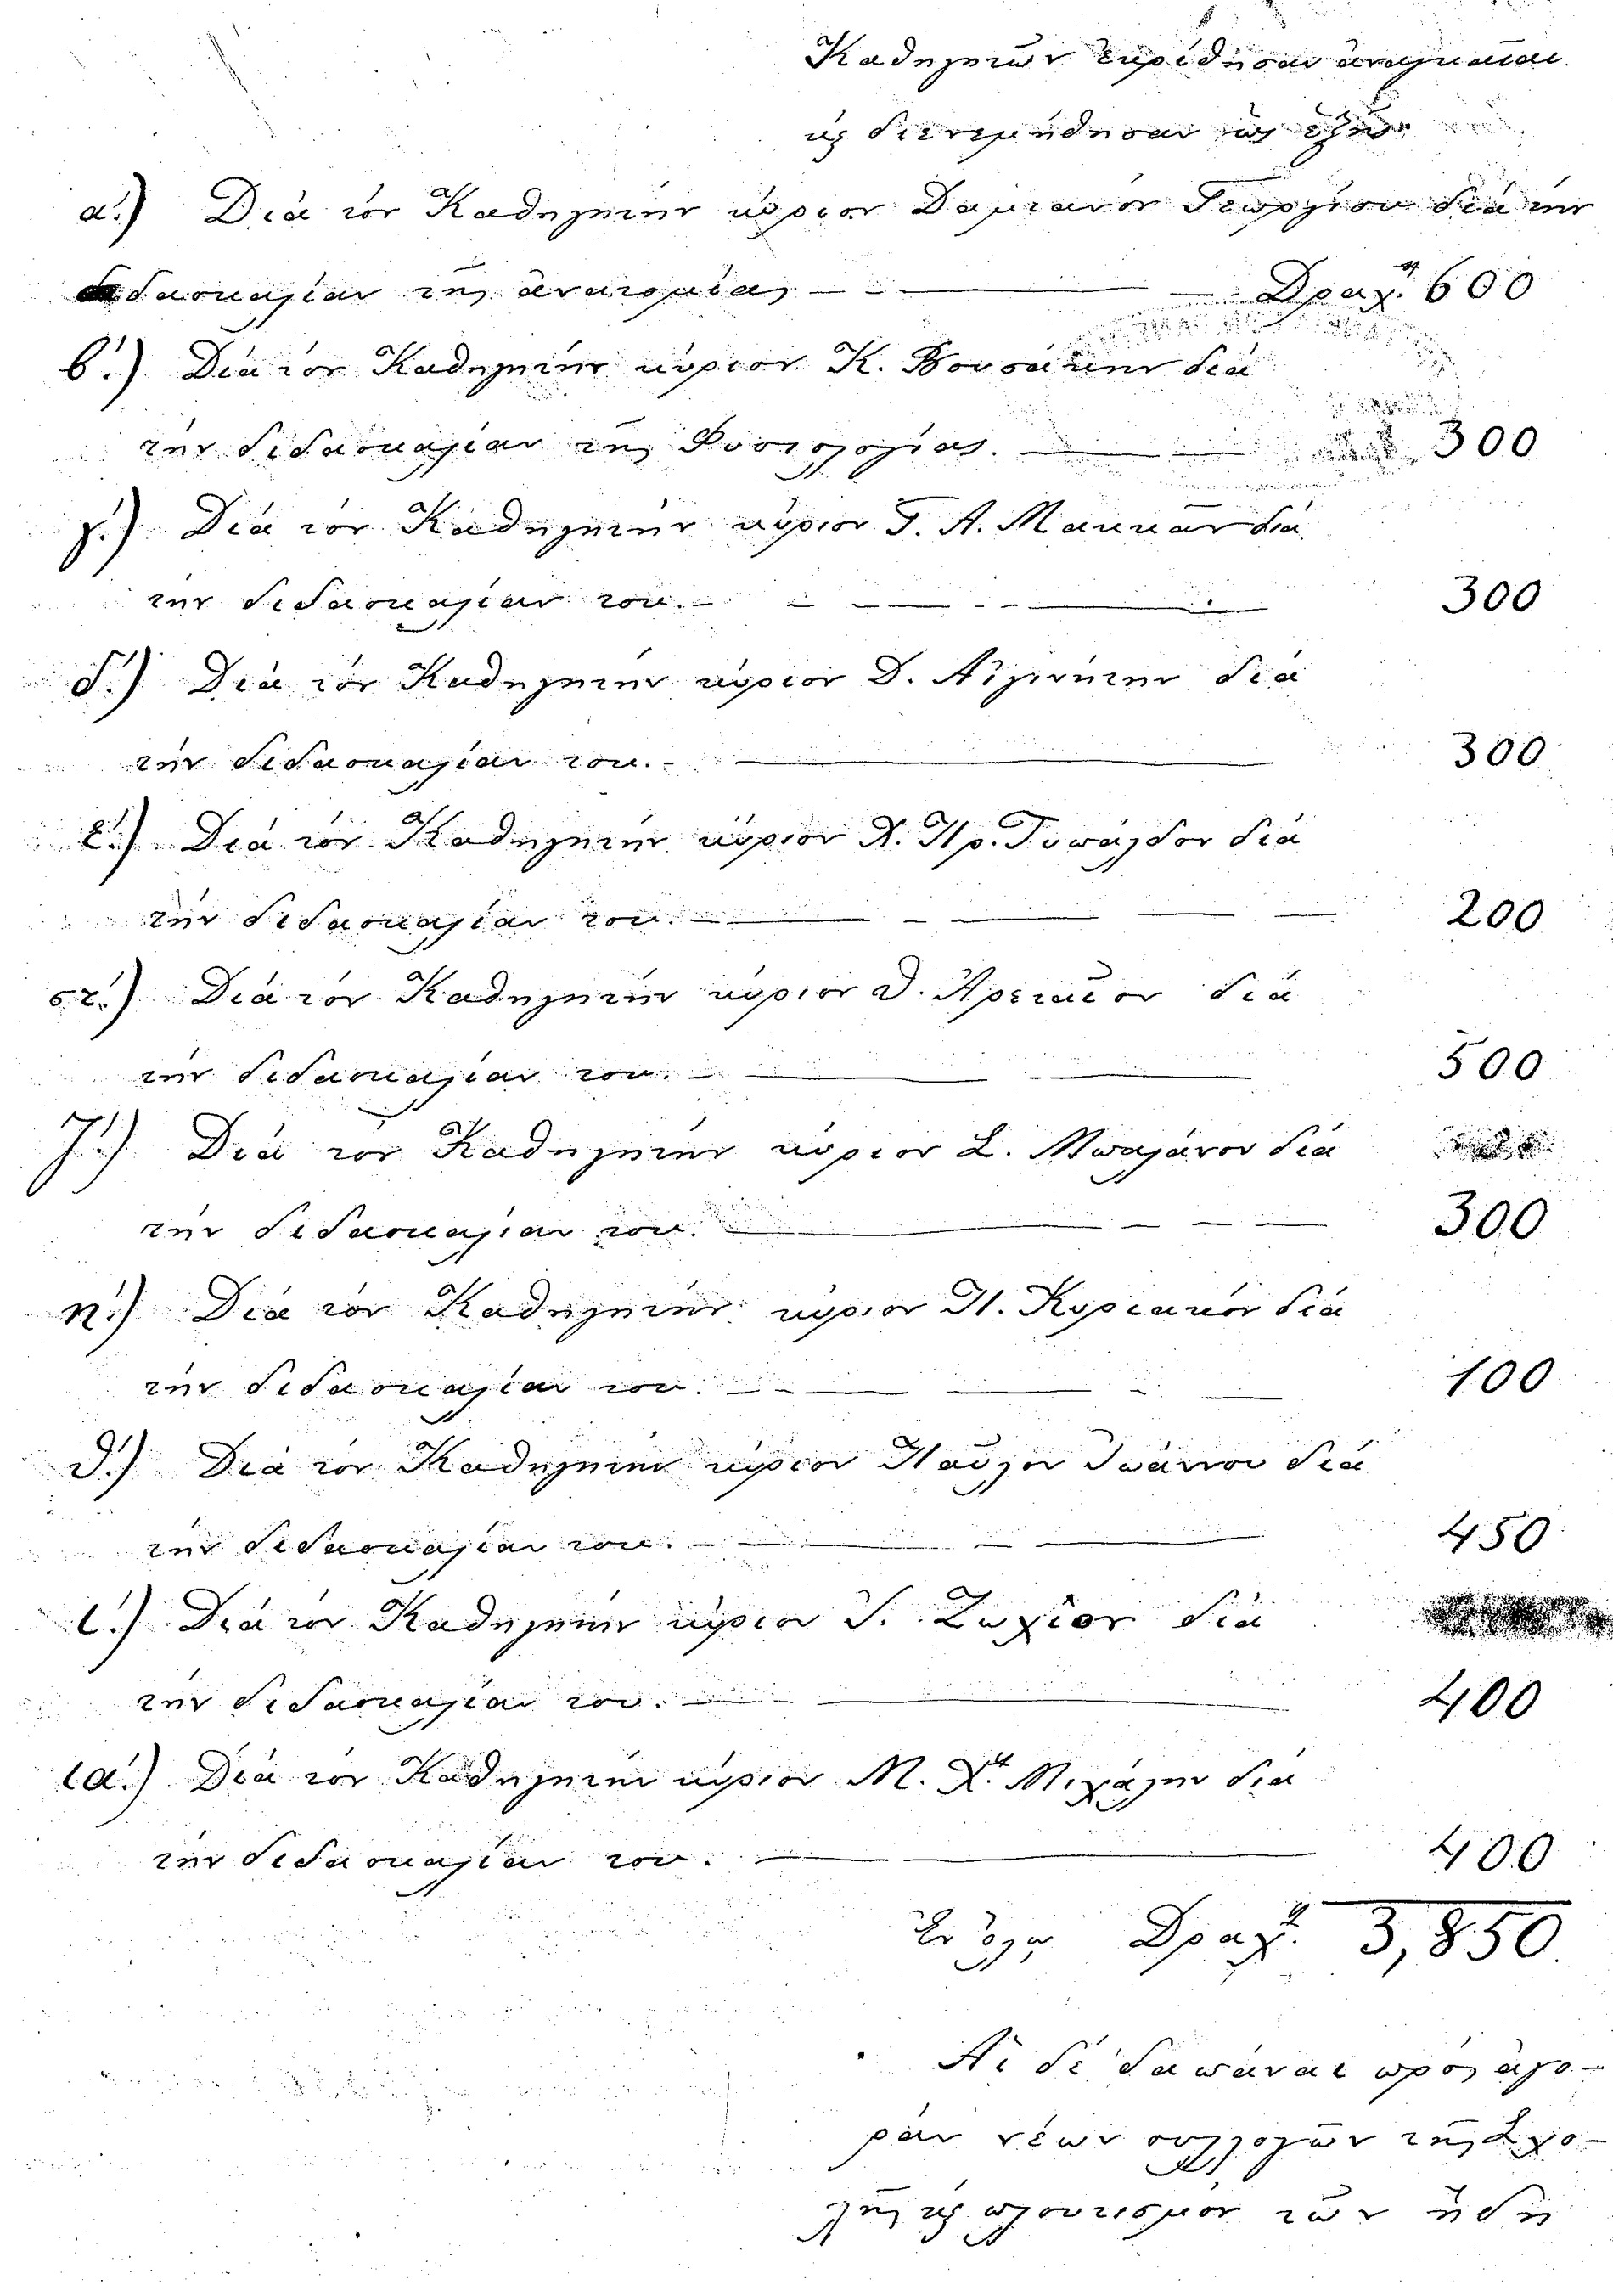 Καθηγητῶν ἐψηφίσθησαν ἀναγκαῖαι
κ̀ διενεμήθησαν ὡς ἑξῆς
α.) Διὰ τὸν Καθηγητὴν κύριον Δαμιανὸν Γεωργίου διὰ τὴν
διδασκαλίαν τῆς ἀνατομίας — Δραχ. 600
β.) Διὰ τὸν Καθηγητὴν κύριον Κ. Βουσάκην διὰ
τὴν διδασκαλίαν τῆς Φυσιολογίας. — 300
γ.) Διὰ τὸν Καθηγητὴν κύριον Γ. Α. Μακκᾶν διὰ
τὴν διδασκαλίαν του. — 300
δ.) Διὰ τὸν Καθηγητὴν κύριον Δ. Αἰγινήτην διὰ
τὴν διδασκαλίαν του. — 300
ε.) Διὰ τὸν Καθηγητὴν κύριον Α. Πρ. διὰ
τὴν διδασκαλίαν του. — 200
στ.) Διὰ τὸν Καθηγητὴν κύριον Δ. διὰ
τὴν διδασκαλίαν του. — 500
ζ.) Διὰ τὸν Καθηγητὴν κύριον Σ. Μπαλάνον διὰ
τὴν διδασκαλίαν του. — 300
η.) Διὰ τὸν Καθηγητὴν κύριον Π. Κυριακὸν διὰ
τὴν διδασκαλίαν του. — 100
θ.) Διὰ τὸν Καθηγητὴν κύριον Παῦλον Ἰωάννου διὰ
τὴν διδασκαλίαν του. — 450
ι.) Διὰ τὸν Καθηγητὴν κύριον διὰ
τὴν διδασκαλίαν του. — 400
ια.) Διὰ τὸν Καθηγητὴν κύριον Μ. Χ. Μιχάλην διὰ
τὴν διδασκαλίαν του. — 400
Ἐν ὅλῳ Δραχ. 3,850
Αἱ δὲ δαπάναι πρὸς ἀγο-
ρὰν νέων συλλογῶν τῆς Σχο-
λῆς κ̀ πλουτισμὸν τῶν ἤδη